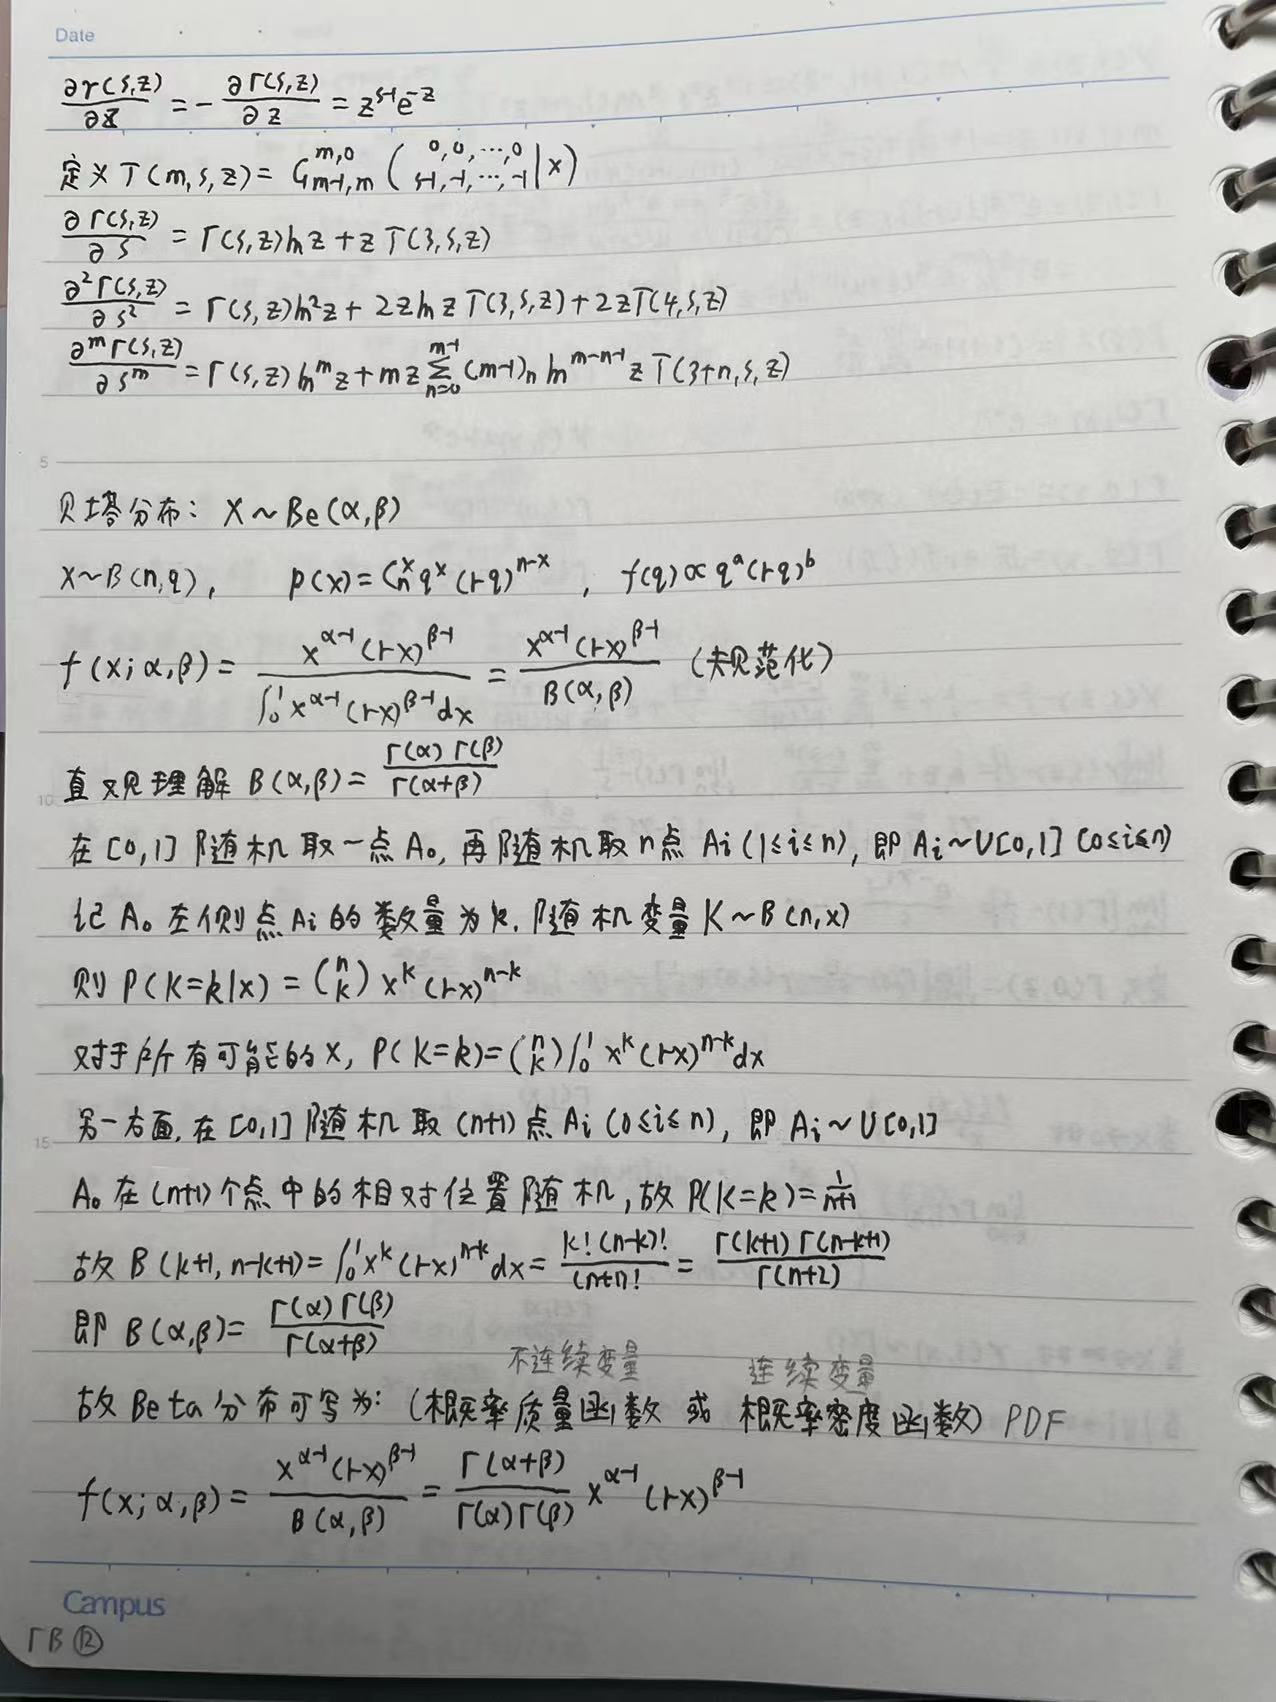 Date
∂γ(s,z)/∂z = -∂Γ(s,z)/∂z = z^{s-1}e^{-z}
定义 T(m,s,z) = G^{m,0}_{m-1,m} (0,0,…,0 / s-1,-1,…,-1 | x)
∂Γ(s,z)/∂s = Γ(s,z)ln z + z T(3,s,z)
∂²Γ(s,z)/∂s² = Γ(s,z)ln²z + 2z ln z T(3,s,z) + 2zT(4,s,z)
∂^mΓ(s,z)/∂s^m = Γ(s,z) ln^m z + mz Σ_{n=0}^{m-1} (m-1)_n ln^{m-n-1} z T(3+n,s,z)
5
贝塔分布: X ~ Be(α,β)
X~B(n,q), p(x) = C_n^x q^x (1-q)^{n-x}, f(q) ∝ q^a (1-q)^b
f(x;α,β) = x^{α-1}(1-x)^{β-1} / ∫_0^1 x^{α-1}(1-x)^{β-1}dx = x^{α-1}(1-x)^{β-1} / B(α,β) (规范化)
直观理解 B(α,β) = Γ(α)Γ(β)/Γ(α+β)
10
在[0,1]随机取一点A₀, 再随机取n点Ai(1≤i≤n), 即Ai~U[0,1](0≤i≤n)
记A₀左侧点Ai的数量为k, 随机变量K~B(n,x)
则 P(K=k|x) = (n k) x^k (1-x)^{n-k}
对于所有可能的x, P(K=k) = (n k) ∫_0^1 x^k (1-x)^{n-k} dx
另一方面, 在[0,1]随机取(n+1)点Ai(0≤i≤n), 即Ai~U[0,1]
15
A₀在(n+1)个点中的相对位置随机, 故P(K=k) = 1/(n+1)
故 B(k+1, n-k+1) = ∫_0^1 x^k (1-x)^{n-k} dx = k!(n-k)!/(n+1)! = Γ(k+1)Γ(n-k+1)/Γ(n+2)
即 B(α,β) = Γ(α)Γ(β)/Γ(α+β)
不连续变量 连续变量
故Beta分布可写为: (概率质量函数 或 概率密度函数) PDF
f(x;α,β) = x^{α-1}(1-x)^{β-1} / B(α,β) = Γ(α+β)/Γ(α)Γ(β) x^{α-1} (1-x)^{β-1}
Campus
ΓB ⑫